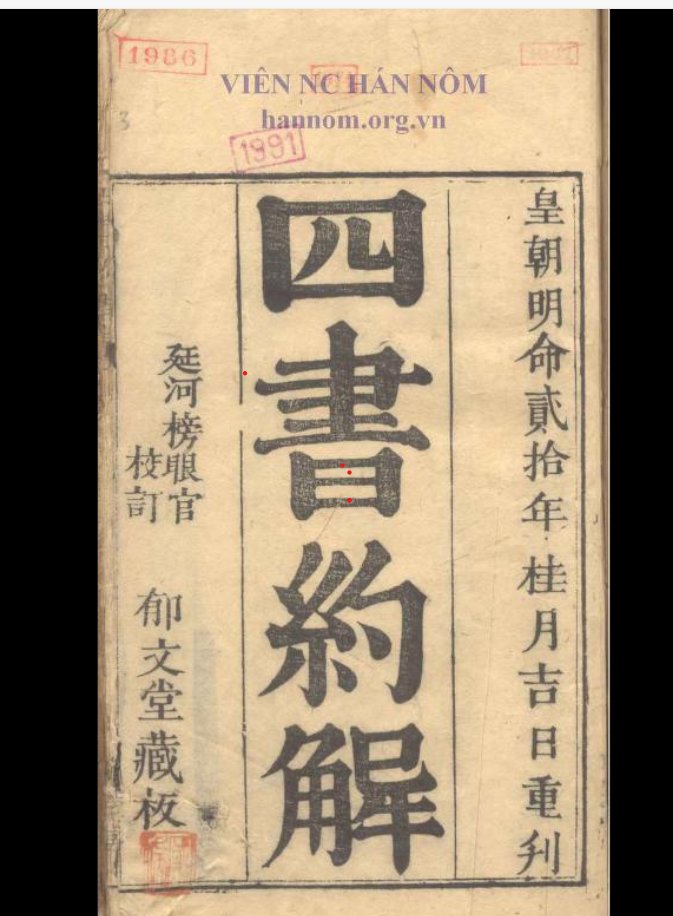 1986
VIÊN NC HÁN NÔM
hannom.org.vn
3
1991
皇朝明命貳拾年桂月吉日重刋
四書約解
延河榜眼官
校訂
郁文堂藏板